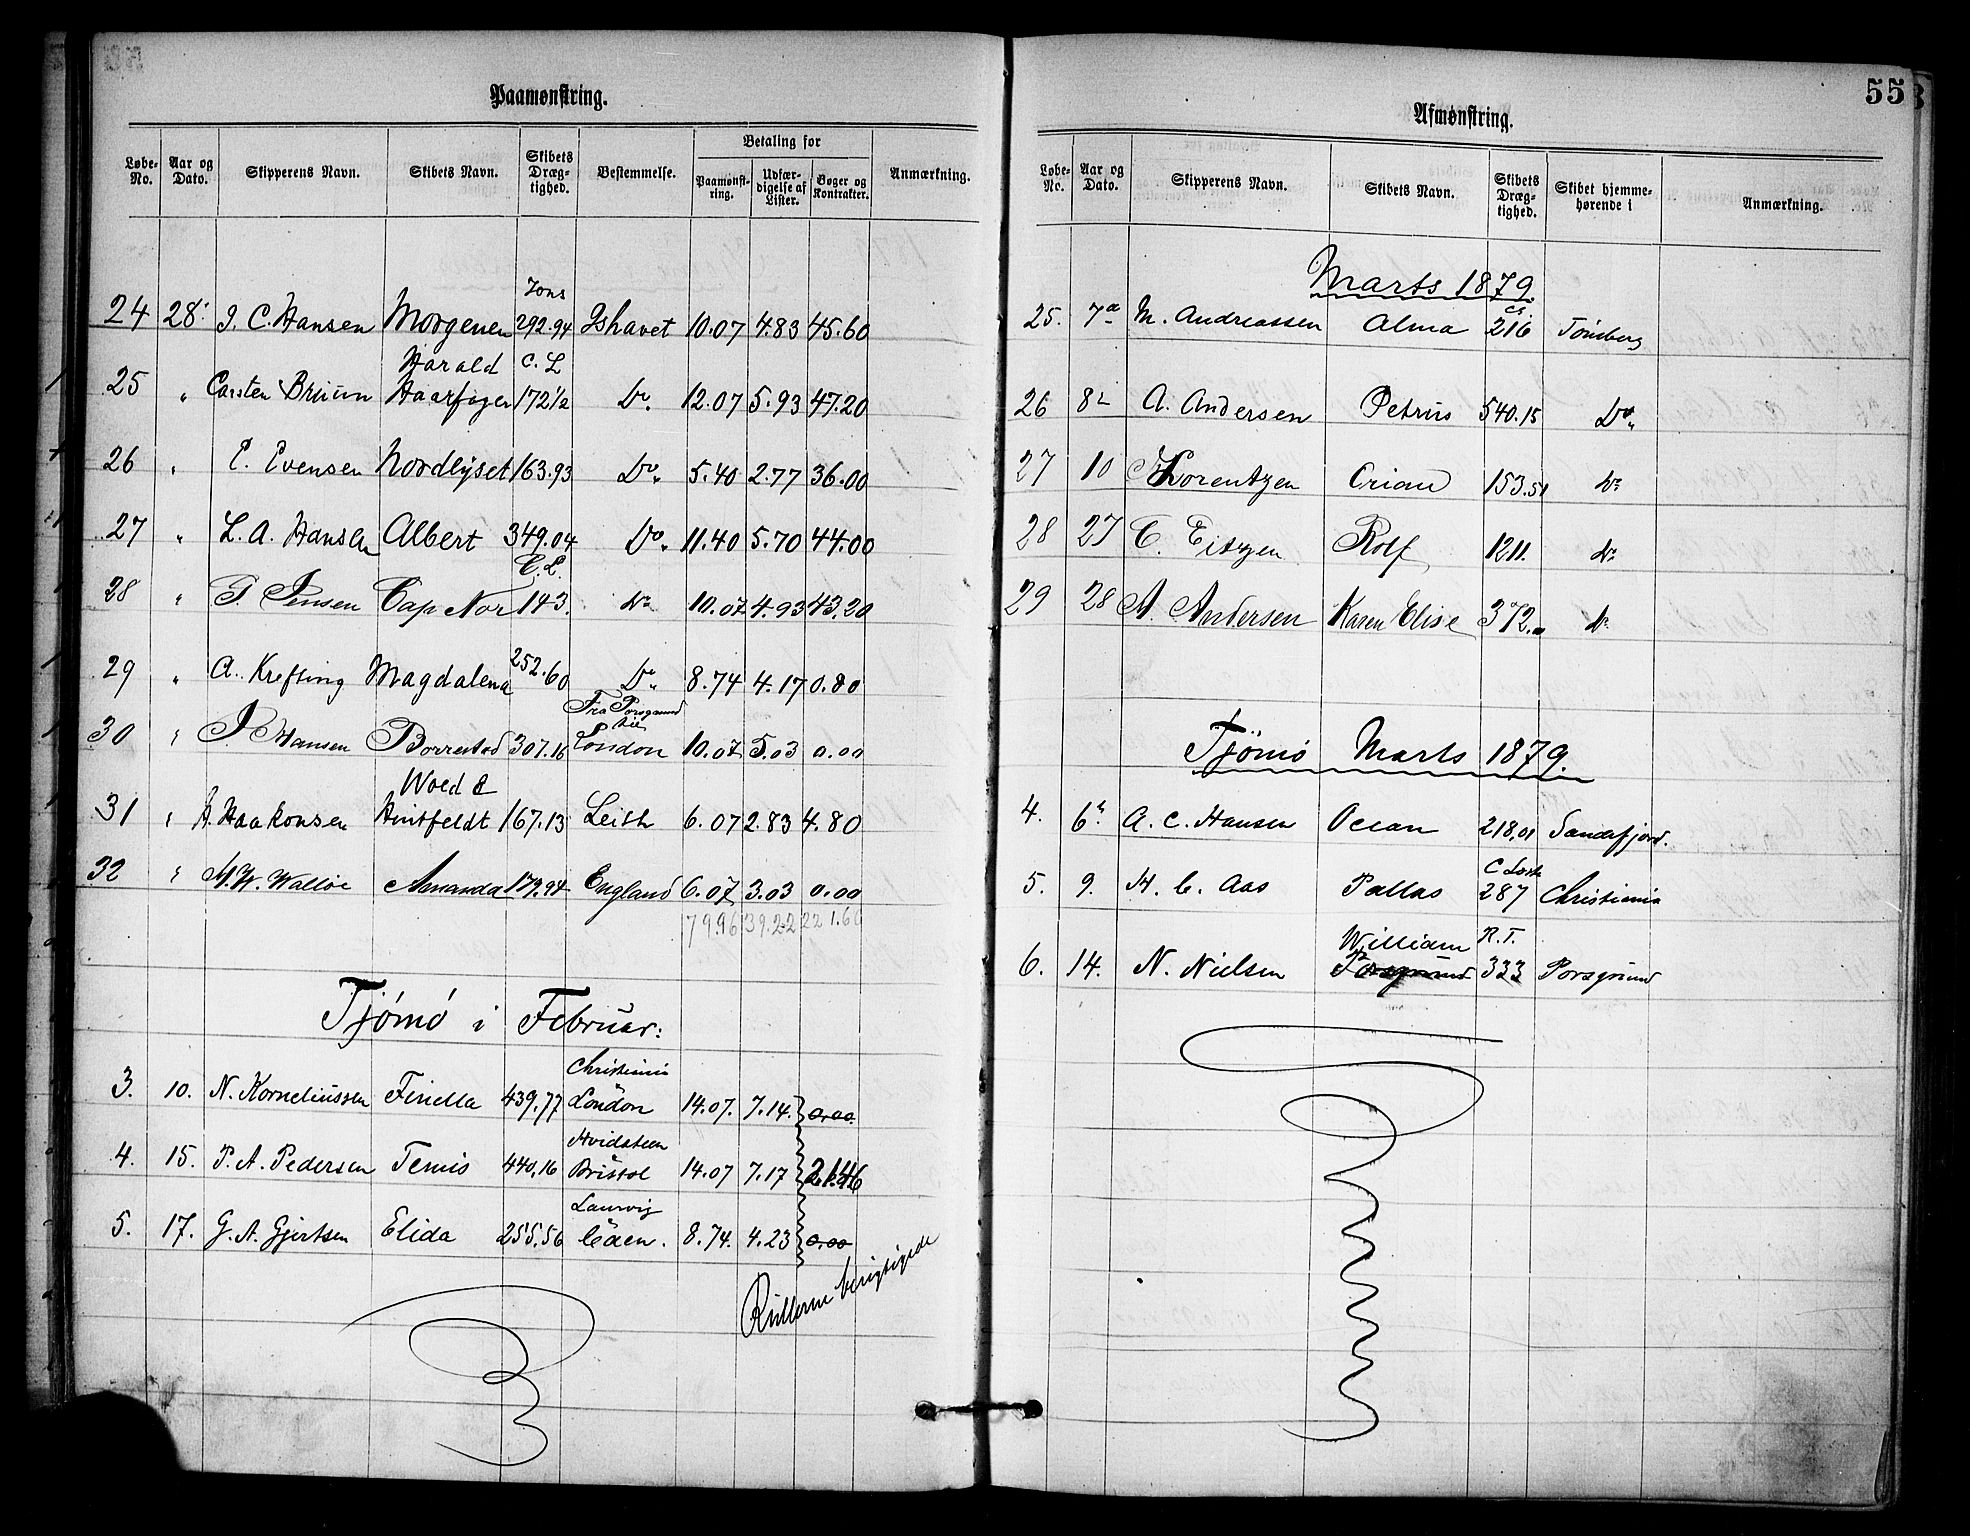 Paamønstring.
Løbe-No. Aar og Dato. Skipperens Navn. Skibets Navn. Skibets Dræg-tighed. Bestemmelse. Betaling for Paamønst-ring. Udfær-digelse af Lister. Bøger og Kontrakter. Anmærkning.
Tons
24 28' J. C. Hansen Morgenen 292.94 Ishavet 10.07 4.83 45.60
Harald C. L
25 " Carsten Bruun Haarfager 172½ Do. 12.07 5.93 47.20
26 " E. Evensen Nordlyset 163.93 Do. 5.40 2.77 36.00
27 " L. A. Hansen Albert 349.04 Do. 11.40 5.70 44.00
C. L.
28 " Jensen Cap Nor 143. Do 10.07 4.93 43.20
29 " A. Krefting Magdalena 252.60 Do. 8.74 4.17 0.80
Fra Porsgrund til
30 " Hansen Borrestad 307.16 London 10.07 5.03 0.00
Woed &
31 " H. Haakonsen Hintfeldt 167.13 Leith 6.07 2.83 4.80
32 " M. W. Walløe Amanda 179.94 England 6.07 3.03 0.00
79.96 39.22 221.60
Tjömö i Februar:
Christiania
3. 10. N. Korneliussen Finella 439.77 London 14.07. 7.14. 0.00.
Hvidsteen
4. 15. P. A. Pedersen Temis 440,16 Bristol 14.07 7.17 21.46
Laurvig
5. 17. G. A. Gjertsen Elida 255.56 Caen. 8.74. 4.23 0.00
Rullerne berigtigede
55
Afmønstring.
Løbe-No. Aar og Dato. Skipperens Navn. Skibets Navn. Skibets Dræg-tighed. Skibet hjemme-hørende i Anmærkning.
Marts 1879.
25. 7 M. Andreassen Alma 216 Tönsberg
26 8 A. Andersen Petrus 540.15 Do.
27 10 Lorentzen 153.51 Do
28 27 C. Eitzen Rolf 1211. Do
29 28 A. Andersen Karen Elise 372. Do
Tjömö Marts 1879.
4. 6 A. C. Hansen Ocean 218,01 Sandefjord.
C Læster
5. 9. H. C. Aas Pallas 287 Christiania
William R. T.
6. 14. N. Nielsen Porsgrund 333 Porsgrund